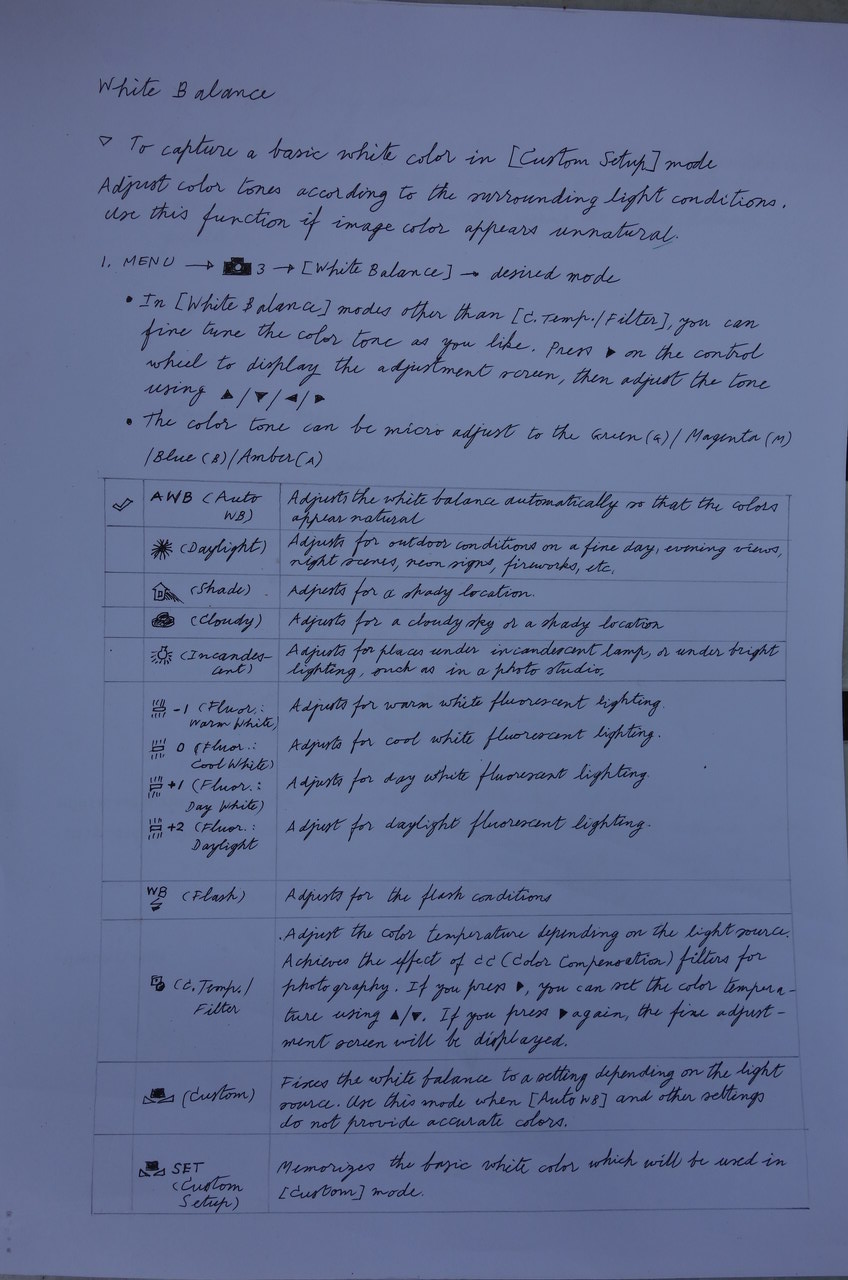 White Balance
▽ To capture a basic white color in [Custom Setup] mode
Adjust color tones according to the surrounding light conditions.
Use this function if image color appears unnatural.
1. MENU → 3 → [White Balance] → desired mode
• In [White Balance] modes other than [C.Temp./Filter], you can
fine tune the color tone as you like. Press ▶ on the control
wheel to display the adjustment screen, then adjust the tone
using ▲/▼/◀/▶
• The color tone can be micro adjust to the Green (G)/ Magenta (M)
/Blue (B)/Amber (A)
✓ AWB (Auto WB) Adjusts the white balance automatically so that the colors
appear natural
(Daylight) Adjusts for outdoor conditions on a fine day, evening views,
night scenes, neon signs, fireworks, etc.
(Shade) Adjusts for a shady location.
(Cloudy) Adjusts for a cloudy sky or a shady location
(Incandescent) Adjusts for places under incandescent lamp, or under bright
lighting, such as in a photo studio.
-1 (Fluor.: Warm White) Adjusts for warm white fluorescent lighting.
0 (Fluor.: Cool White) Adjusts for cool white fluorescent lighting.
+1 (Fluor.: Day White) Adjusts for day white fluorescent lighting.
+2 (Fluor.: Daylight Adjust for daylight fluorescent lighting.
WB (Flash) Adjusts for the flash conditions
(C.Temp./ Filter Adjust the color temperature depending on the light source.
Achieves the effect of CC (Color Compensation) filters for
photography. If you press ▶, you can set the color tempera-
ture using ▲/▼. If you press ▶ again, the fine adjust-
ment screen will be displayed.
(Custom) Fixes the white balance to a setting depending on the light
source. Use this mode when [Auto WB] and other settings
do not provide accurate colors.
SET (Custom Setup) Memorizes the basic white color which will be used in
[Custom] mode.